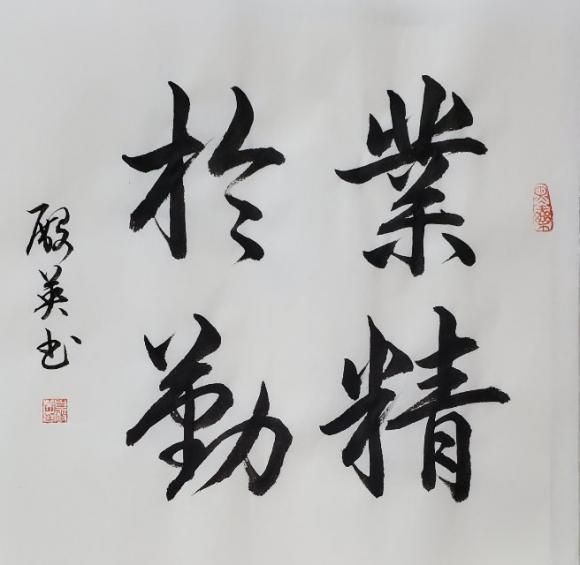 業精
於勤
殷英书